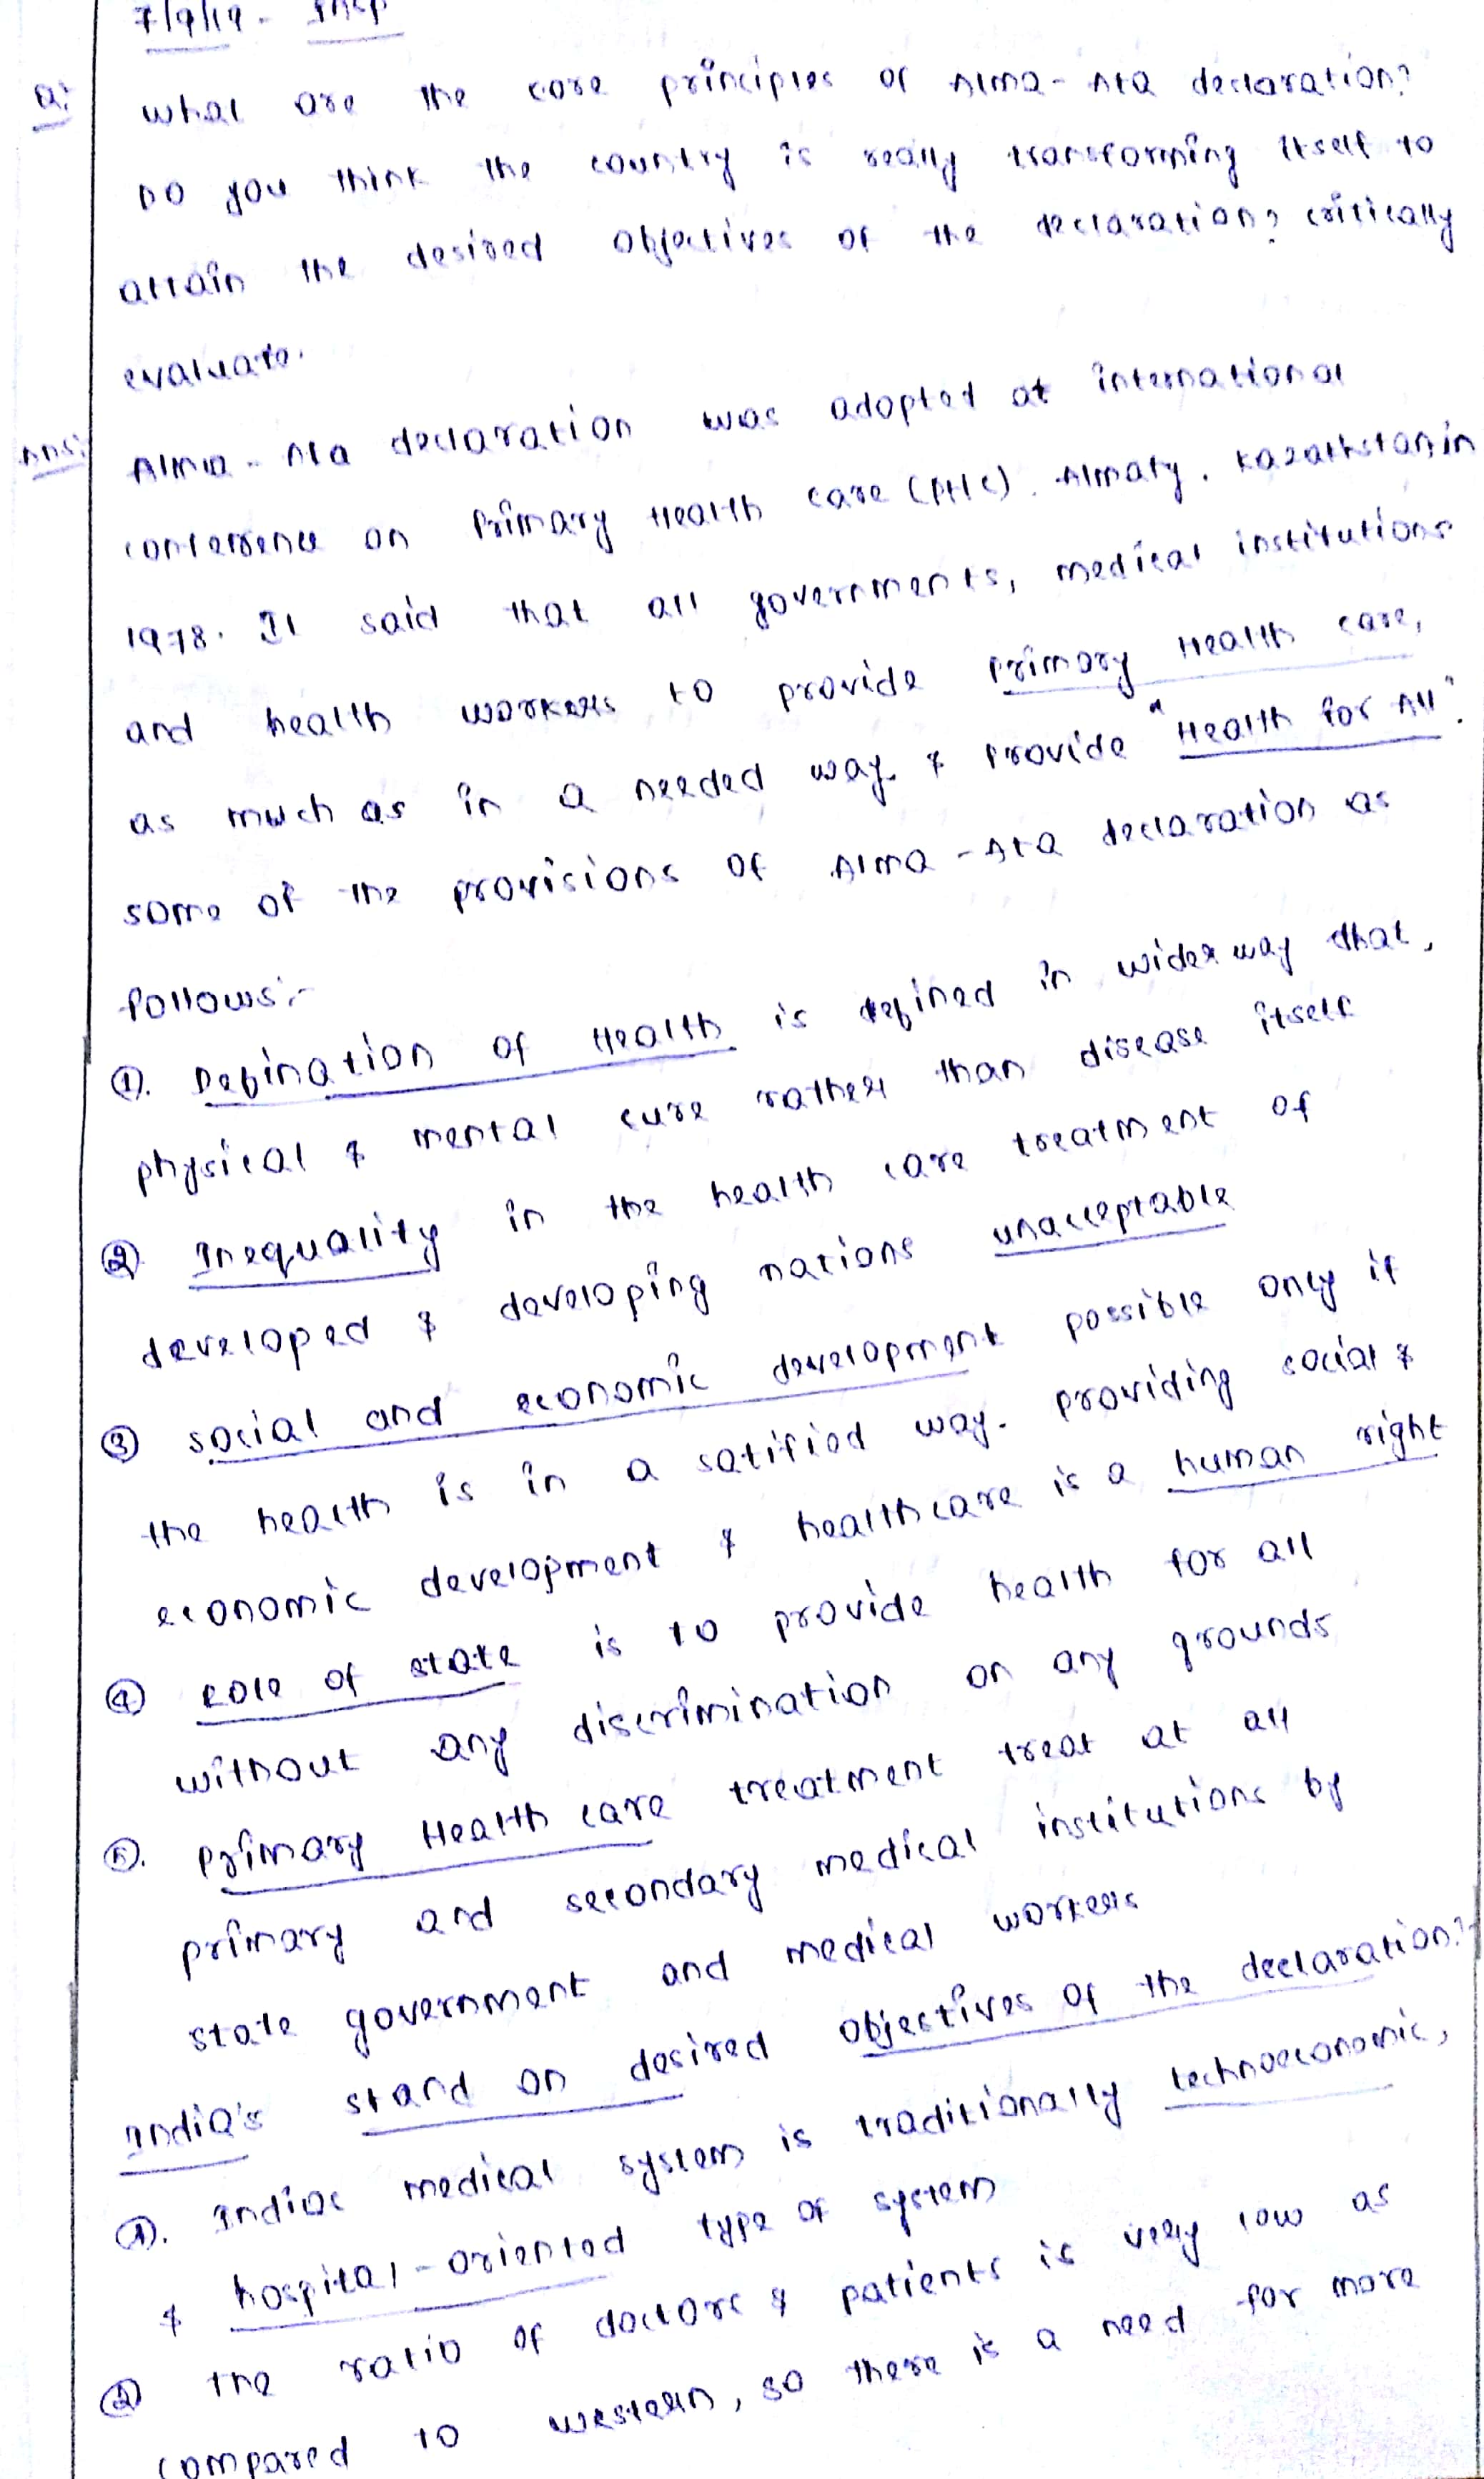 7/9/19 - Insp
Q: What are the core principles of Alma-Ata declaration?
DO you think the country is really transforming itself to
attain the desired objectives of the declaration? critically
evaluate.
Ans: Alma-Ata declaration was adopted at international
conference on Primary Health care (PHC). Almaty. Kazakhstan in
1978. It said that all governments, medical institutions
and health workers to provide Primary Health care,
as much as in a needed way. & provide "Health for All".
some of the provisions of Alma-Ata declaration as
follows:-
①. Defination of Health is defined in wider way that,
physical & mental cure rather than disease itself
② Inequality in the health care treatment of
developed & developing nations unacceptable
③ social and economic development possible only if
the health is in a satified way. providing social &
economic development & healthcare is a human right
④ Role of state is to provide health for all
without any discrimination on any grounds
⑤. Primary Health care treatment treat at all
primary and secondary medical institutions by
state government and medical workers
India's stand on desired objectives of the declaration:-
①. Indias medical system is traditionally technoeconomic,
& hospital-oriented type of system
② The ratio of doctors & patients is very low as
compared to western, so there is a need for more